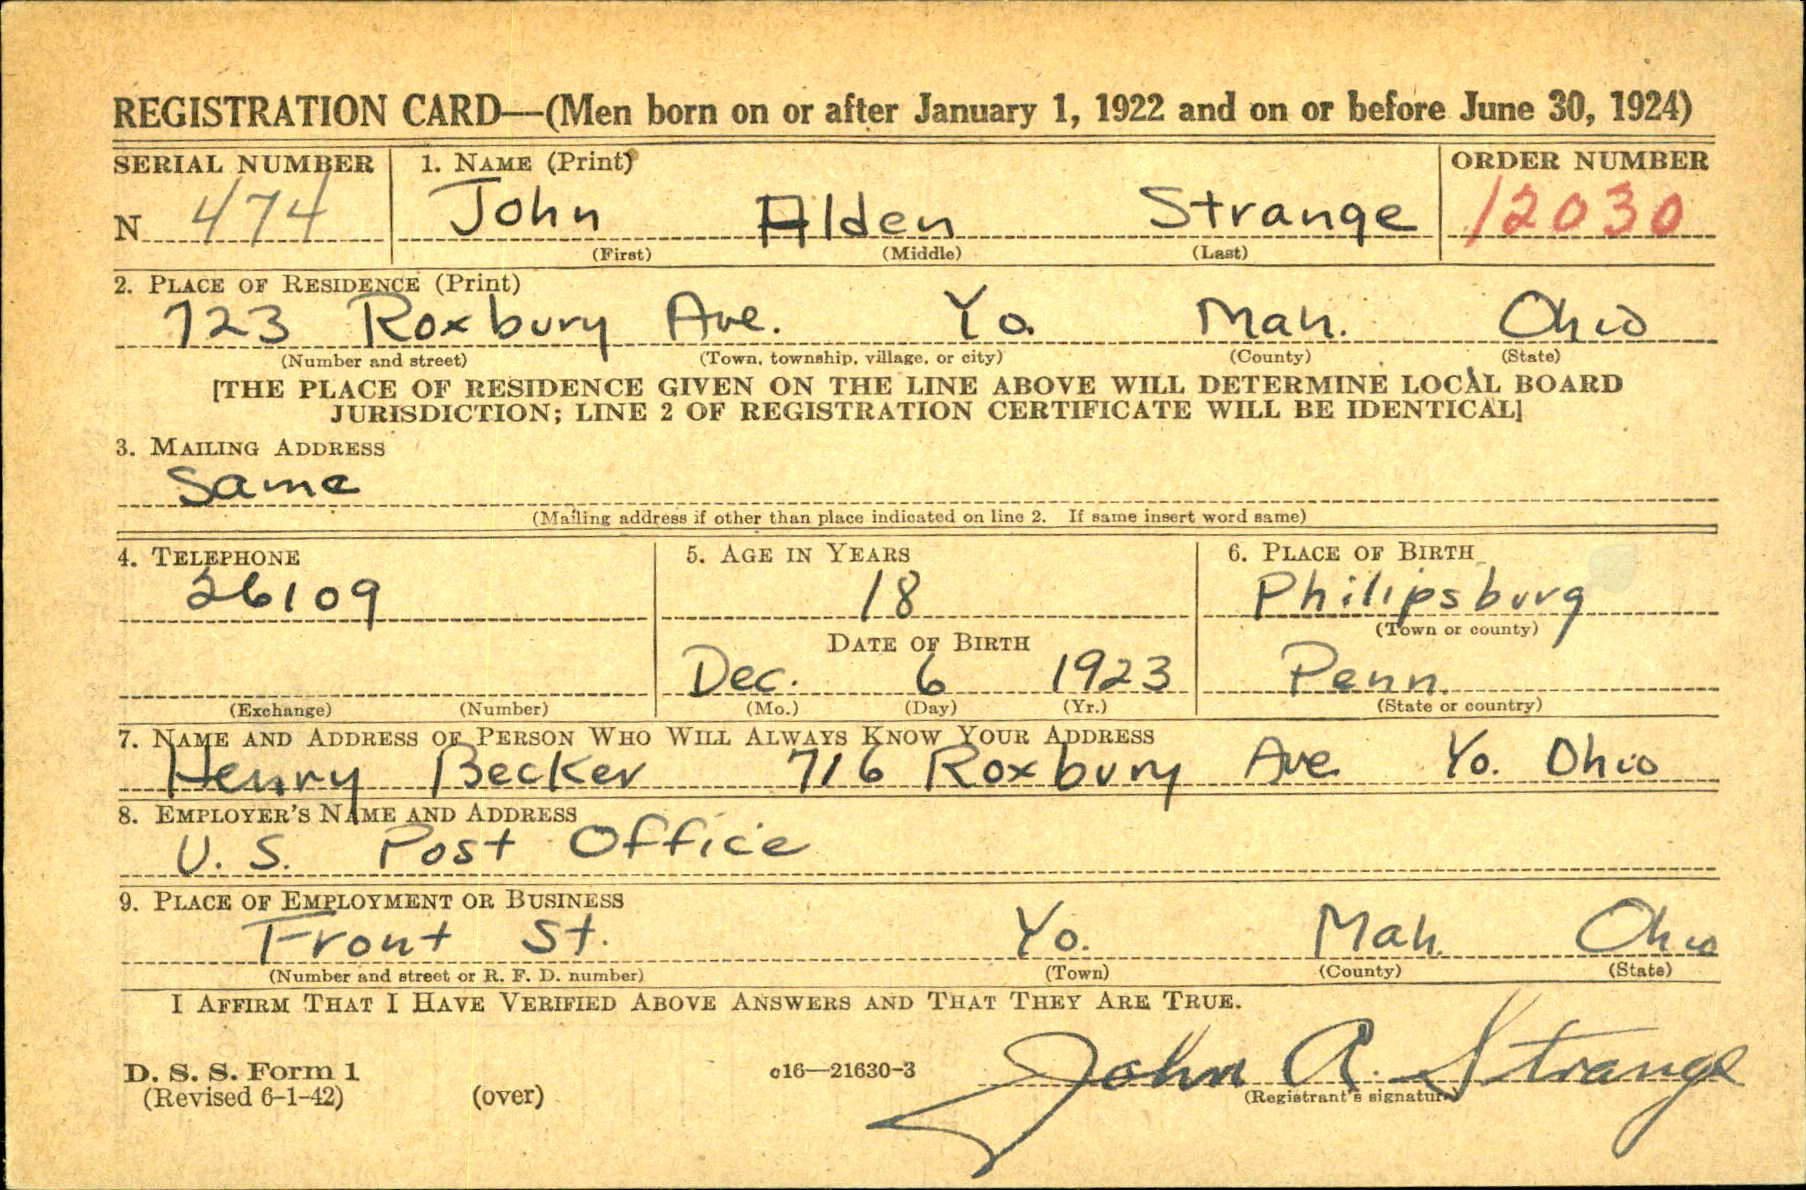 REGISTRATION CARD—(Men born on or after January 1, 1922 and on or before June 30, 1924)
SERIAL NUMBER 1. NAME (Print) ORDER NUMBER
N 474 John Alden Strange 12030
(First) (Middle) (Last)
2. PLACE OF RESIDENCE (Print)
723 Roxbury Ave. Yo. Mah. Ohio
(Number and street) (Town, township, village, or city) (County) (State)
[THE PLACE OF RESIDENCE GIVEN ON THE LINE ABOVE WILL DETERMINE LOCAL BOARD
JURISDICTION; LINE 2 OF REGISTRATION CERTIFICATE WILL BE IDENTICAL]
3. MAILING ADDRESS
Same
(Mailing address if other than place indicated on line 2. If same insert word same)
4. TELEPHONE 5. AGE IN YEARS 6. PLACE OF BIRTH
26109 18 Philipsburg
(Town or county)
DATE OF BIRTH
Dec. 6 1923 Penn.
(Exchange) (Number) (Mo.) (Day) (Yr.) (State or country)
7. NAME AND ADDRESS OF PERSON WHO WILL ALWAYS KNOW YOUR ADDRESS
Henry Becker 716 Roxbury Ave Yo. Ohio
8. EMPLOYER'S NAME AND ADDRESS
U. S. Post Office
9. PLACE OF EMPLOYMENT OR BUSINESS
Front St. Yo. Mah. Ohio
(Number and street or R. F. D. number) (Town) (County) (State)
I AFFIRM THAT I HAVE VERIFIED ABOVE ANSWERS AND THAT THEY ARE TRUE.
D. S. S. Form 1 c16—21630-3 John A. Strange
(Revised 6-1-42) (over) (Registrant's signature)